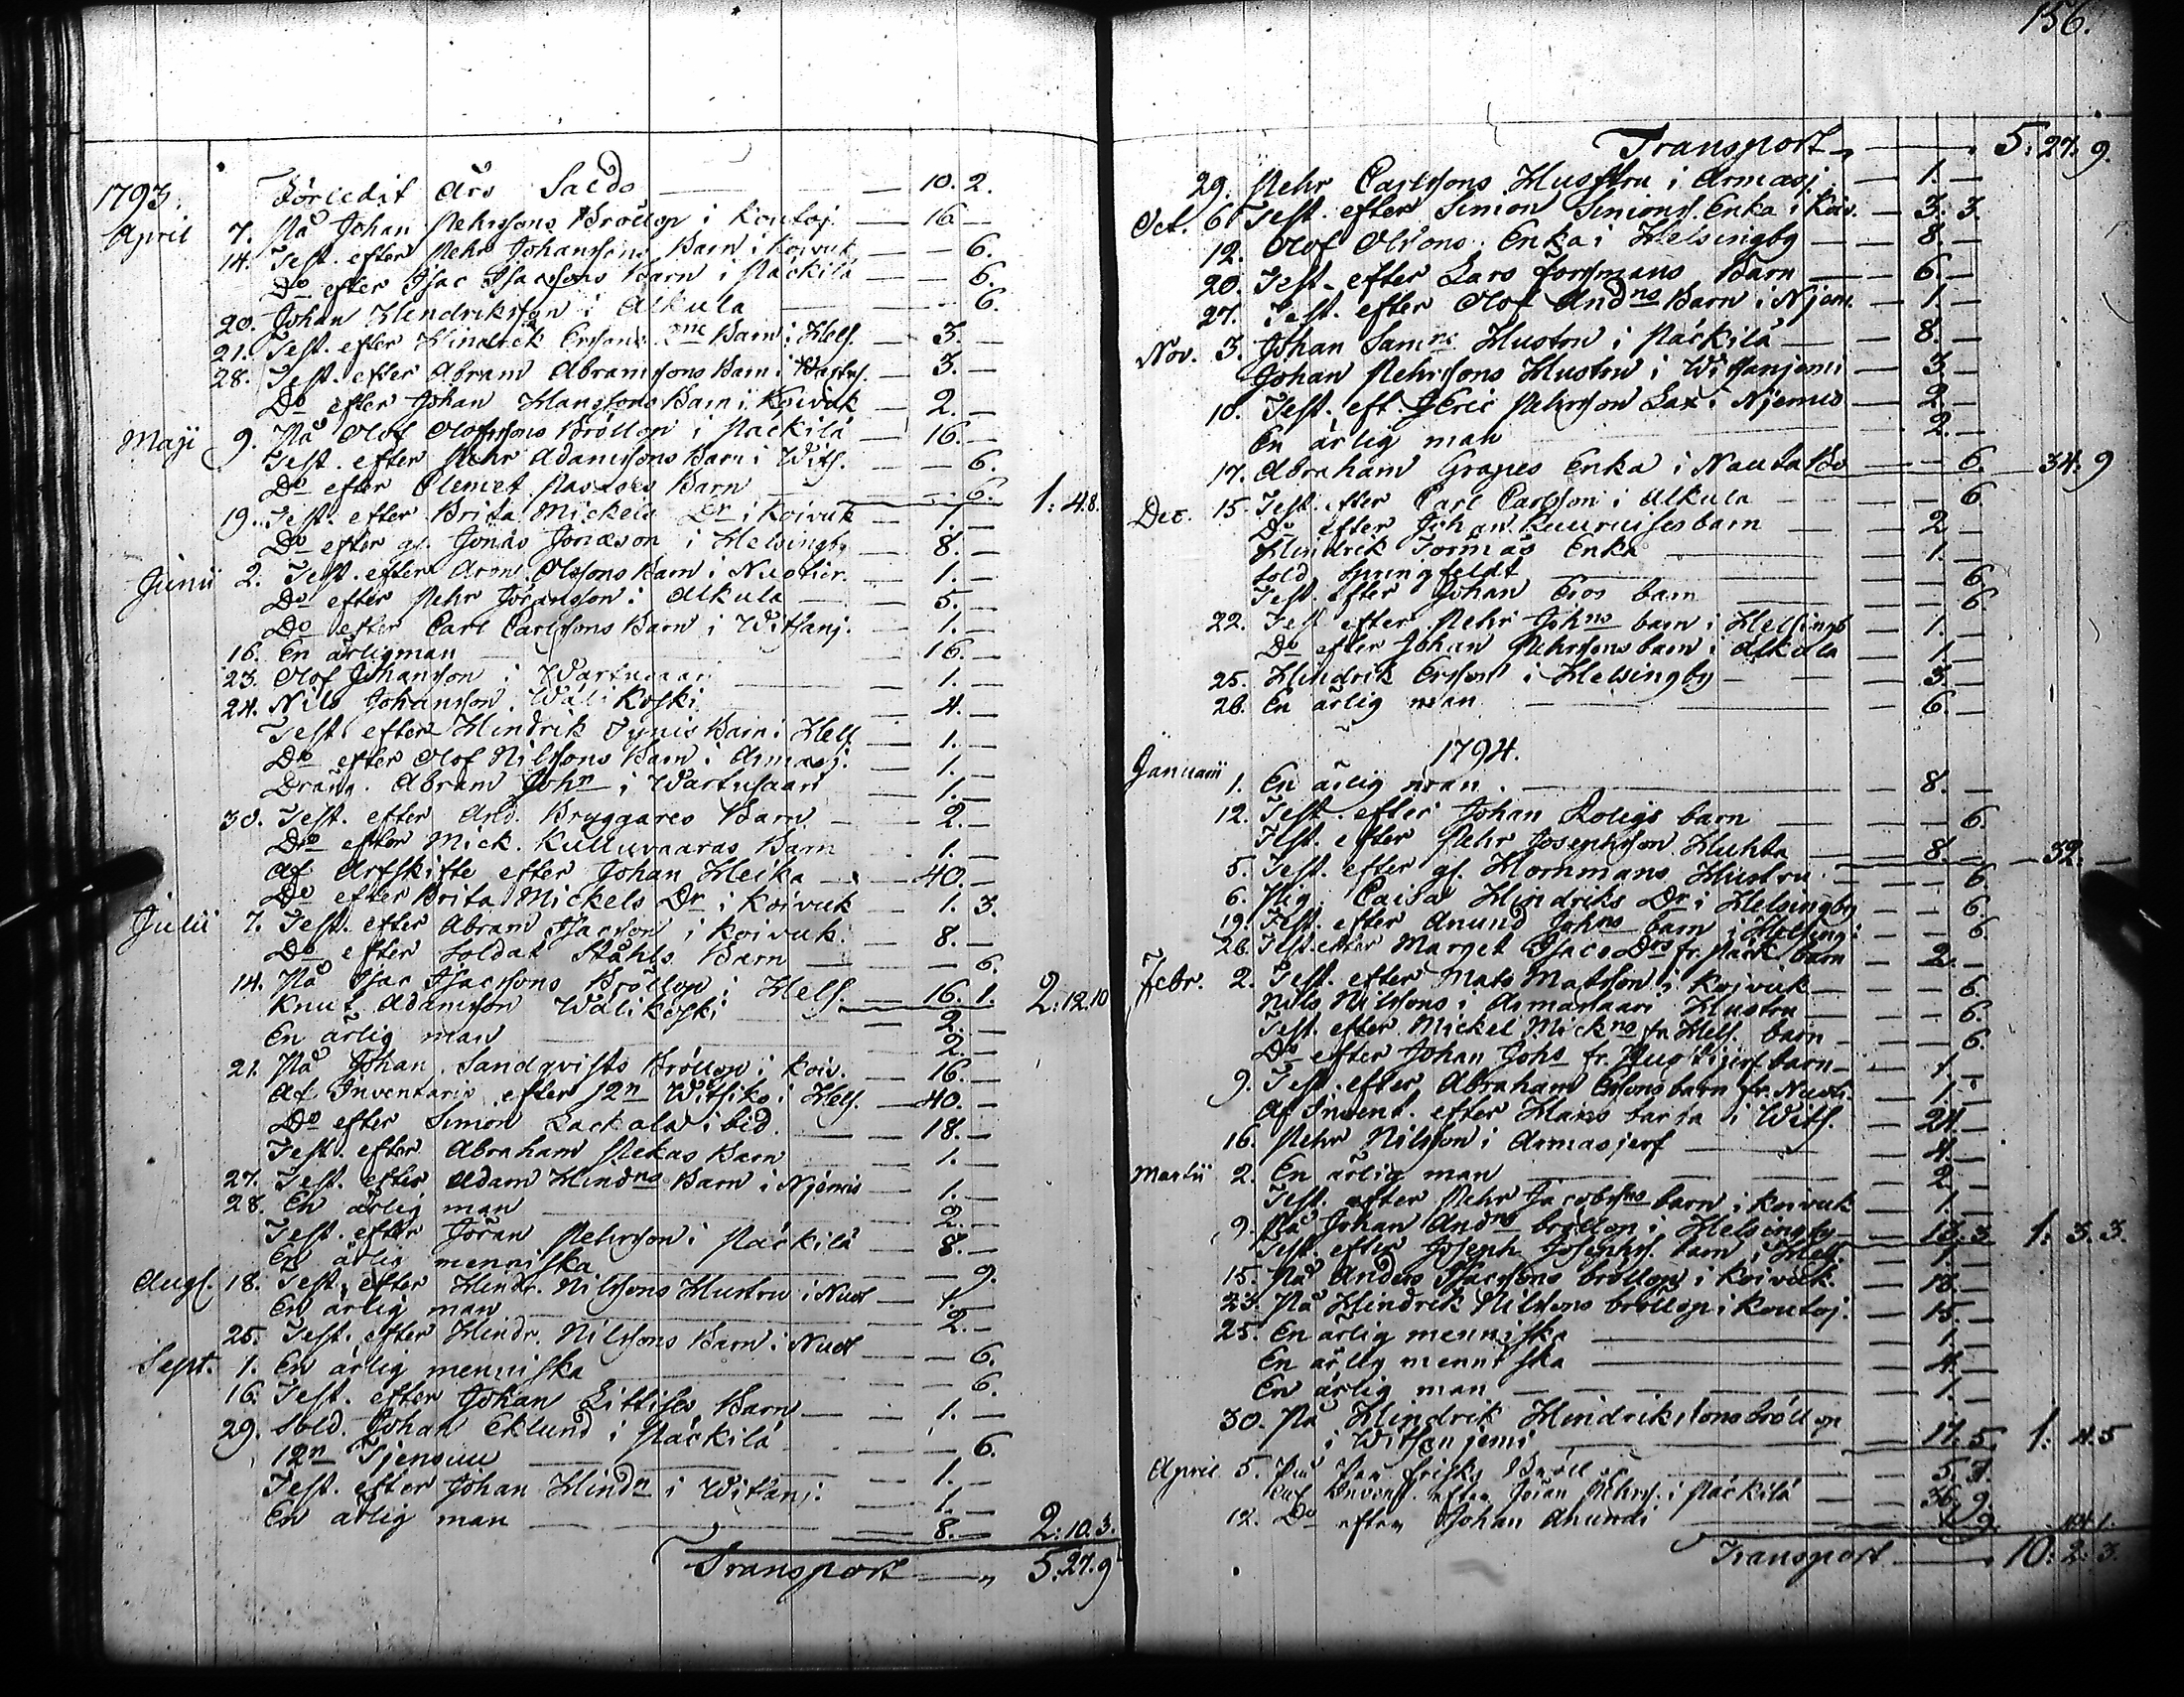 1793. Förledit Års Saldo — 10. 2.
April 7. På Johan Pehrssons Bröllop i Koutoj. — 16 —
14. Test. efter Pehr Johanssons Barn i Koivuk — — 6.
Do efter Isac Isacssons Barn i Päckilä — 6.
20. Johan Hendriksson i Alkula — 6
21. Test. efter Hindrick Erssons 2ne Barn i Hels. — 3. —
28. Test. efter Abram Abramssons Barn i Wartus. — 3. —
Do efter Johan Hanssons Barn i Koivuk — 2. —
Maji 9. På Olof Olofssons Bröllop i Päckilä — 16. —
Test. efter Pehr Adamssons Barn i Wits. — — 6.
Do efter Clemet Barn — 6. 1: 48.
19. Test. efter Brita Mickels Dr i Koivuk — 1. —
Do efter gl. Jonas Jonæson i Helsingby — 8. —
Junii 2. Test. efter Arm. Olssons Barn i Nuotier. — 1. —
Do efter Pehr Jöransson i Alkula — 5. —
Do efter Carl Carlssons Barn i Witsanj. — 1. —
16. En ärligman — 16. —
23. Olof Johansson i Wartusaari — 1. —
24. Nils Johansson Wälikoski — 4. —
Test. efter Hindrik Tynis Barn i Hels. — 1. —
Do efter Olof Nilssons Barn i Armasj. — 1. —
Dräng. Abram John i Wartusaari — 1. —
30. Test. efter And. Bryggares Barn — 2. —
Do efter Mick. Kulluvaaras Barn — 1. —
Af Arfskifte efter Johan Heika — 40. —
Do efter Brita Mickels Dr i Koivuk — 1. 3.
Julii 7. Test. efter Abram Isacsson i Koivuk. — 8. —
Do efter Soldat Ståhls Barn — 6.
14. På Isac Isacssons Bröllop i Hels. — 16. 1. 2: 12. 10
Knut Adamsson Wälikoski — 2. —
En ärlig man — 2. —
21. På Johan Sandqvists Bröllop i Koiv. — 16. —
Af Inventarie efter 12n Witsiko i Hels. — 40. —
Do efter Simon Lackala ibid — 18. —
Test. efter Abraham Pekas Barn — 1. —
27. Test. efter Adam Hindns Barn i Njemis — 1. —
28. En ärlig man — 2. —
Test. efter Jöran Pehrsson i Päckilä — 8. —
En ärlig menniska — 9.
Augs. 18. Test. efter Hindr. Nilssons Hustru i Nuot — 1. —
En ärlig man — 2. —
25. Test. efter Hindr. Nilssons Barn i Nuot — 6.
Sept. 1. En ärlig menniska — 6.
16. Test. efter Johan Littises Barn — 1. —
29. Sold. Johan Eklund i Päckilä — 6.
12n Tjensuu — 1. —
Test. efter Johan Hindn i Witsanj. — 1. —
En ärlig man — 8. — 2: 10. 3.
Transport — 5. 27. 9
156.
Transport — 5: 27. 9.
29. Pehr Carlssons Hustru i Armasj. — 1. —
Oct. 6. Test. efter Simon Simons. Enka i Koiv. — 3. 3.
12. Olof Olssons Enka i Helsingby — 8. —
20. Test. efter Lars Forssmans Barn — 6. —
27. Test. efter Olof Andns Barn i Njem. — 1. —
Nov. 3. Johan Samns Hustru i Päckilä — 8. —
Johan Pehrssons Hustru i Witsanjemi — 3. —
10. Test. eft. Eric Pehrsson Lax i Njemis — 2. —
En ärlig man — 2. —
17. Abraham Grapes Enka i Nauta — 6. — 34. 9
Dec. 15. Test. efter Carl Carlsson i Alkula — 6.
Do efter Johan barn — 2. —
Hindrik Tormäs Enka — 1. —
Sold. Springfeldt — 6.
Test. efter Johan barn — 6.
22. Test. efter Pehr Johns barn i Helsingb — 1. —
Do efter Johan Pehrssons barn i Alkula — 1. —
25. Hindrik Ersson i Helsingby — 3. —
26. En ärlig man — 6. —
1794.
Januarii 1. En ärlig man — 8. —
12. Test. efter Johan Roligs barn — 6.
Test. efter Pehr Josephsson Huhta — 8. — 32. —
5. Test. efter gl. Hornmans Hustru — 6.
6. Pig. Caisa Hindriks Dr i Helsingby — 6.
19. Test. efter Anund Johns barn i Helsing: — 6.
26. Test. efter Marget Isacs Drs fr. Päck. barn — 2. —
Febr. 2. Test. efter Mats Matsson i Koivuk — 6.
Nils Nilssons i Armassaari Hustru — 6.
Test. efter Mickel Mickns fr. Hels. barn — 6.
Do efter Johan Johs fr. Nuotijerf. barn — 1. —
9. Test. efter Abraham Erssons barn fr. Nuoti. — 1. —
Af Invent. efter Hans i Wits. — 24. —
16. Pehr Nilsson i Armasjerf — 4. —
Martii 2. En ärlig man — 2. —
Test. efter Pehr Jacobsns barn i Koivuk — 1. —
9. På Johan Andns bröllop i Helsingby — 13. 3 1: 3. 3.
Test. efter Joseph Josephs. barn i Hels. — 1. —
15. På Anders Isacssons bröllop i Koivuk. — 18. —
23. På Hindrik Nilssons bröllop i Koutoj. — 15. —
25. En ärlig menniska — 1. —
En ärlig menniska — 4. —
En ärlig man — 1. —
30. På Hindrik Hindrikssons bröllop
i Witsanjemi — 17. 5. 1: 4. 5
April 5. På Frisks Bröllop — 5. 7.
Af Invent. efter Jöran Pehrs. i Päckilä — 36. 9.
12. Do efter Johan Anundi — 44. 1.
Transport — 10: 2: 3.